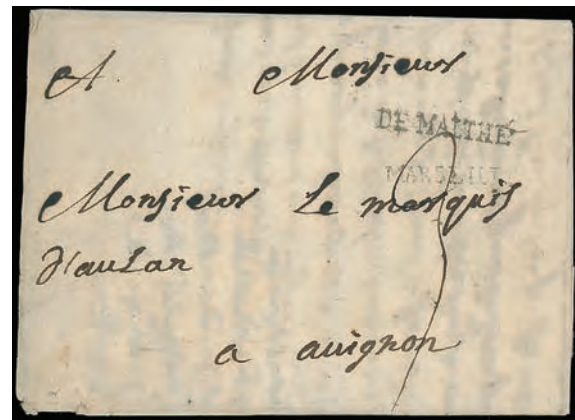 A. Monsieur
DE MALTHE
MARSEILLE
Monsieur Le marquis
d'aulan
a avignon